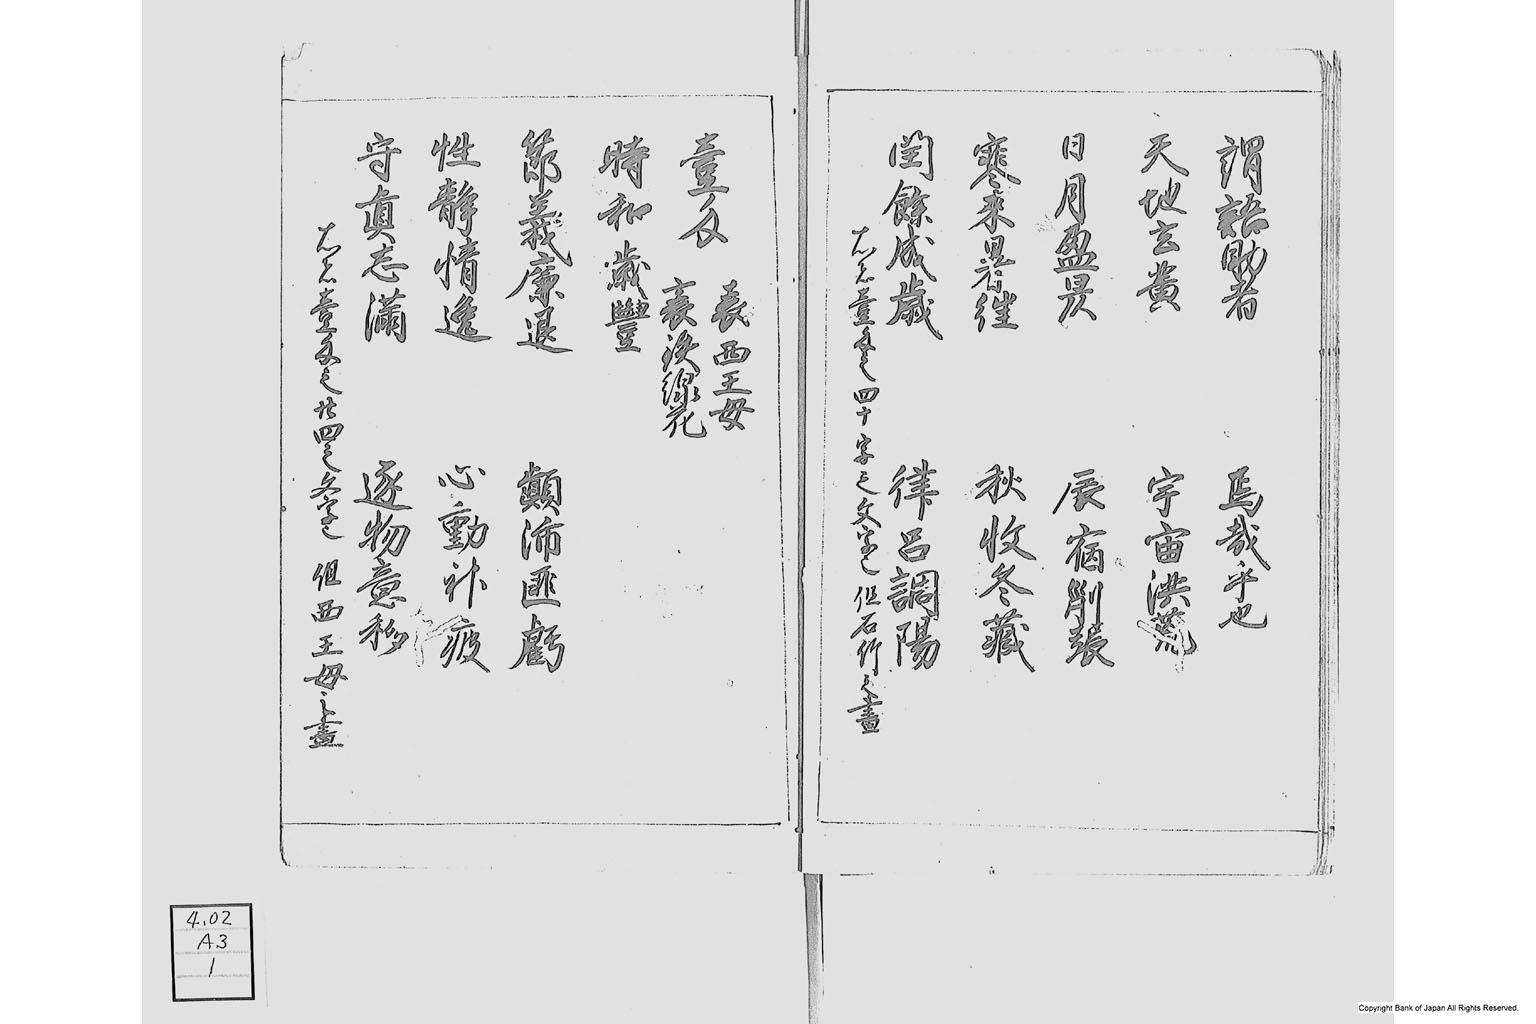 謂語助者 焉哉乎也
天地玄黄 宇宙洪荒
日月盈昃 辰宿列張
寒来暑徃 秋收冬藏
閏餘成歳 律呂調陽
右者壹匁之四十字之文字也 但石竹之畫
表西王母
壹匁
裏淡緑花
時和歳豐
節義廉退 顛沛匪虧
性静情逸 心動神疲
守真志滿 逐物意移
右者壹匁之廿四之文字也 但西王母之畫
4.02
A3
1
Copyright Bank of Japan All Rights Reserved.